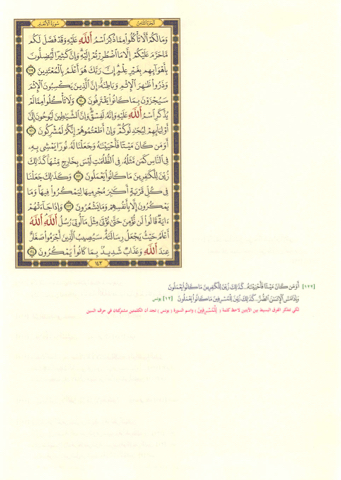 الجزء الثامن سورة الأنعام
وَمَا لَكُمْ أَلَّا تَأْكُلُوا مِمَّا ذُكِرَ اسْمُ اللَّهِ عَلَيْهِ وَقَدْ فَصَّلَ لَكُمْ
مَا حَرَّمَ عَلَيْكُمْ إِلَّا مَا اضْطُرِرْتُمْ إِلَيْهِ وَإِنَّ كَثِيرًا لَيُضِلُّونَ
بِأَهْوَائِهِمْ بِغَيْرِ عِلْمٍ إِنَّ رَبَّكَ هُوَ أَعْلَمُ بِالْمُعْتَدِينَ ١١٩
وَذَرُوا ظَاهِرَ الْإِثْمِ وَبَاطِنَهُ إِنَّ الَّذِينَ يَكْسِبُونَ الْإِثْمَ
سَيُجْزَوْنَ بِمَا كَانُوا يَقْتَرِفُونَ ١٢٠ وَلَا تَأْكُلُوا مِمَّا لَمْ
يُذْكَرِ اسْمُ اللَّهِ عَلَيْهِ وَإِنَّهُ لَفِسْقٌ وَإِنَّ الشَّيَاطِينَ لَيُوحُونَ إِلَى
أَوْلِيَائِهِمْ لِيُجَادِلُوكُمْ وَإِنْ أَطَعْتُمُوهُمْ إِنَّكُمْ لَمُشْرِكُونَ ١٢١
أَوَمَنْ كَانَ مَيْتًا فَأَحْيَيْنَاهُ وَجَعَلْنَا لَهُ نُورًا يَمْشِي بِهِ
فِي النَّاسِ كَمَنْ مَثَلُهُ فِي الظُّلُمَاتِ لَيْسَ بِخَارِجٍ مِنْهَا كَذَلِكَ
زُيِّنَ لِلْكَافِرِينَ مَا كَانُوا يَعْمَلُونَ ١٢٢ وَكَذَلِكَ جَعَلْنَا
فِي كُلِّ قَرْيَةٍ أَكَابِرَ مُجْرِمِيهَا لِيَمْكُرُوا فِيهَا وَمَا
يَمْكُرُونَ إِلَّا بِأَنْفُسِهِمْ وَمَا يَشْعُرُونَ ١٢٣ وَإِذَا جَاءَتْهُمْ
آيَةٌ قَالُوا لَنْ نُؤْمِنَ حَتَّى نُؤْتَى مِثْلَ مَا أُوتِيَ رُسُلُ اللَّهِ اللَّهُ
أَعْلَمُ حَيْثُ يَجْعَلُ رِسَالَتَهُ سَيُصِيبُ الَّذِينَ أَجْرَمُوا صَغَارٌ
عِنْدَ اللَّهِ وَعَذَابٌ شَدِيدٌ بِمَا كَانُوا يَمْكُرُونَ ١٢٤
١٤٣
[١٢٢] أَوَمَنْ كَانَ مَيْتًا فَأَحْيَيْنَاهُ.. كَذَلِكَ زُيِّنَ لِلْكَافِرِينَ مَا كَانُوا يَعْمَلُونَ
وَإِذَا مَسَّ الْإِنْسَانَ الضُّرُّ.. كَذَلِكَ زُيِّنَ لِلْمُسْرِفِينَ مَا كَانُوا يَعْمَلُونَ [١٢] يونس
لكي نتذكر الفرق البسيط بين الآيتين لاحظ كلمة ( لِلْمُسْرِفِينَ ) واسم السورة ( يونس ) تجد أن الكلمتين مشتركتان في حرف السين